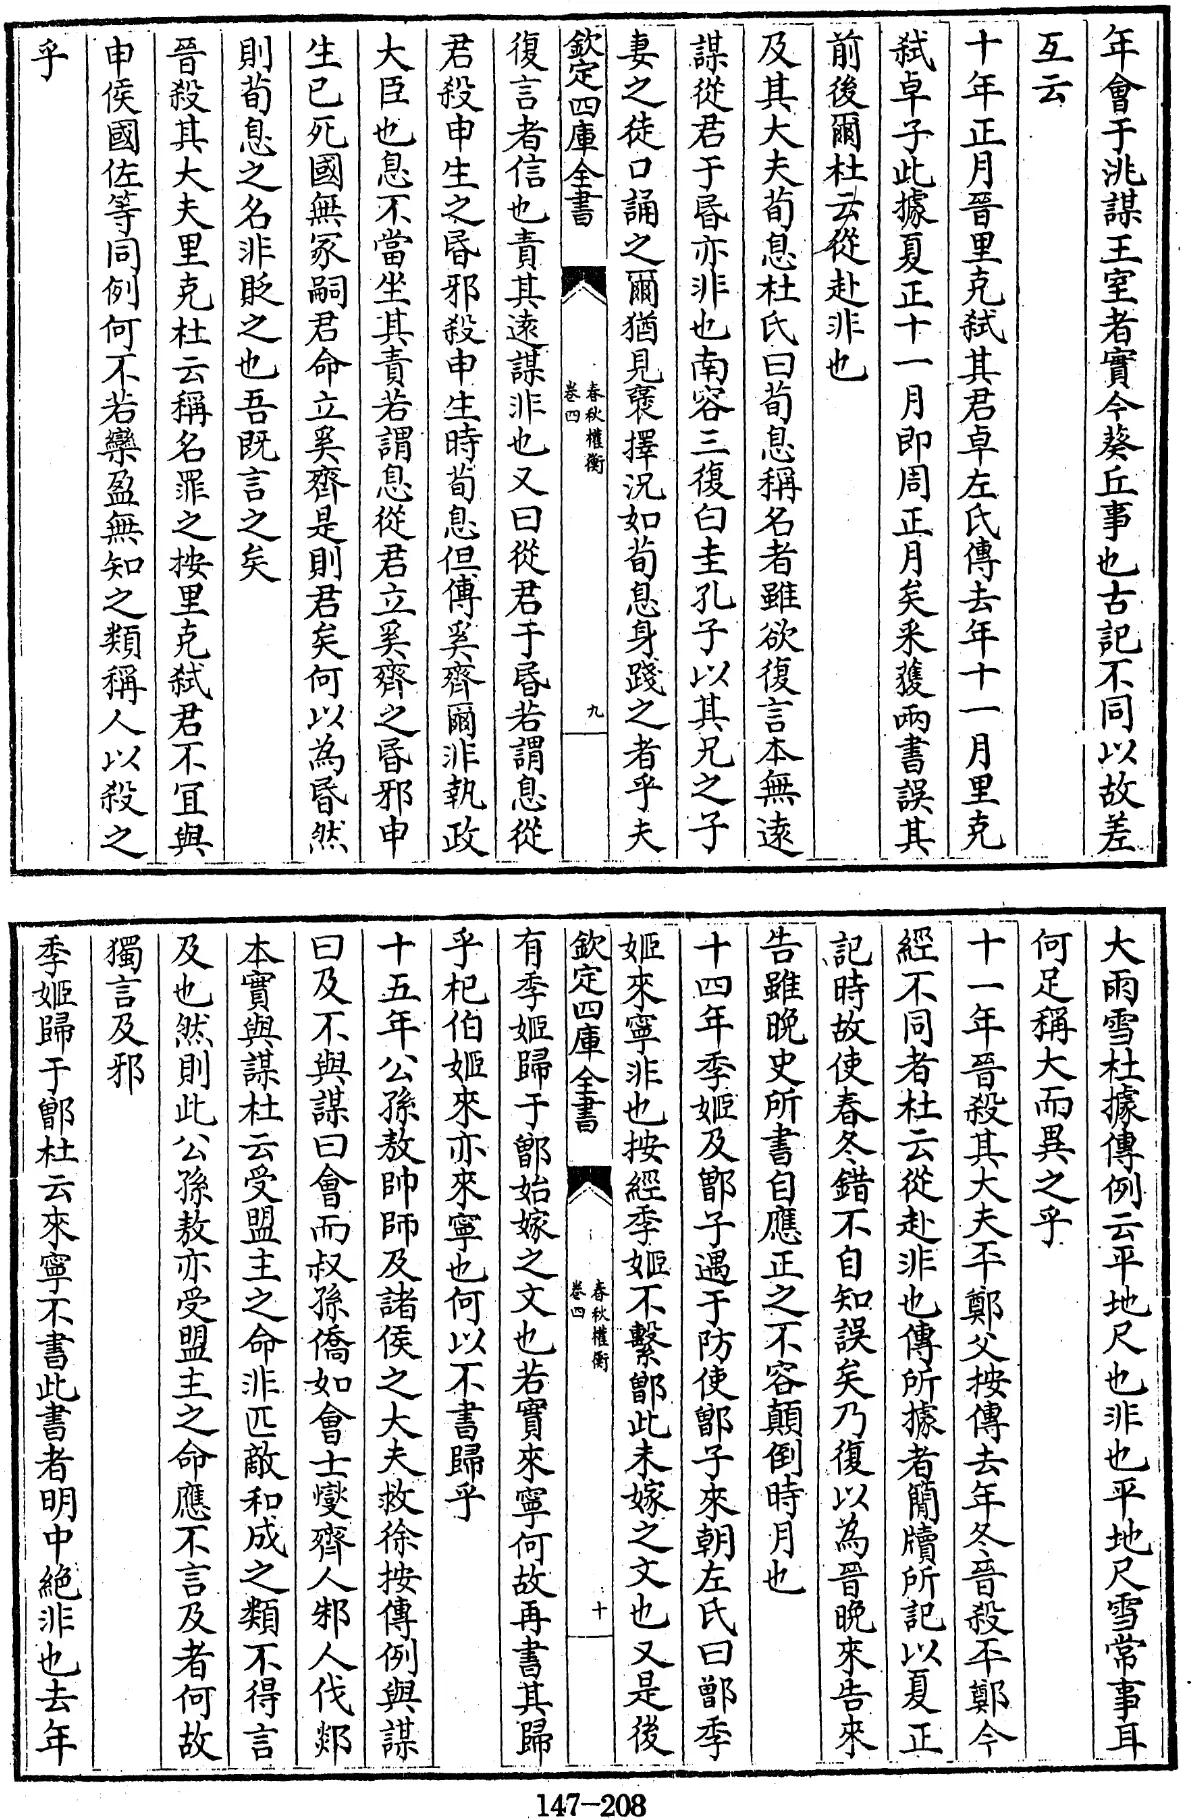 年會于洮謀王室者實今葵丘事也古記不同以故差
互云
十年正月晉里克弑其君卓左氏傳去年十一月里克
弑卓子此據夏正十一月即周正月矣釆獲兩書誤其
前後爾杜云從赴非也
及其大夫荀息杜氏曰荀息稱名者雖欲復言本無遠
謀從君于昬亦非也南容三復白圭孔子以其兄之子
妻之徒口誦之爾猶見襃擇況如荀息身踐之者乎夫
欽定四庫全書
春秋權衡
卷四
九
復言者信也責其遠謀非也又曰從君于昬若謂息從
君殺申生之昬邪殺申生時荀息但傅奚齊爾非執政
大臣也息不當坐其責若謂息從君立奚齊之昬邪申
生已死國無冢嗣君命立奚齊是則君矣何以為昬然
則荀息之名非貶之也吾既言之矣
晉殺其大夫里克杜云稱名罪之按里克弑君不宜與
申侯國佐等同例何不若欒盈無知之類稱人以殺之
乎
大雨雪杜據傳例云平地尺也非也平地尺雪常事耳
何足稱大而異之乎
十一年晉殺其大夫㔻鄭父按傳去年冬晉殺㔻鄭今
經不同者杜云從赴非也傳所據者簡牘所記以夏正
記時故使春冬錯不自知誤矣乃復以為晉晚來告來
告雖晚史所書自應正之不容顛倒時月也
十四年季姬及鄫子遇于防使鄫子來朝左氏曰鄫季
姬來寧非也按經季姬不繫鄫此未嫁之文也又是後
欽定四庫全書
春秋權衡
卷四
十
有季姬歸于鄫始嫁之文也若實來寧何故再書其歸
乎杞伯姬來亦來寧也何以不書歸乎
十五年公孫敖帥師及諸侯之大夫救徐按傳例與謀
曰及不與謀曰會而叔孫僑如會士燮齊人邾人伐郯
本實與謀杜云受盟主之命非匹敵和成之類不得言
及也然則此公孫敖亦受盟主之命應不言及者何故
獨言及邪
季姬歸于鄫杜云來寧不書此書者明中絕非也去年
147-208